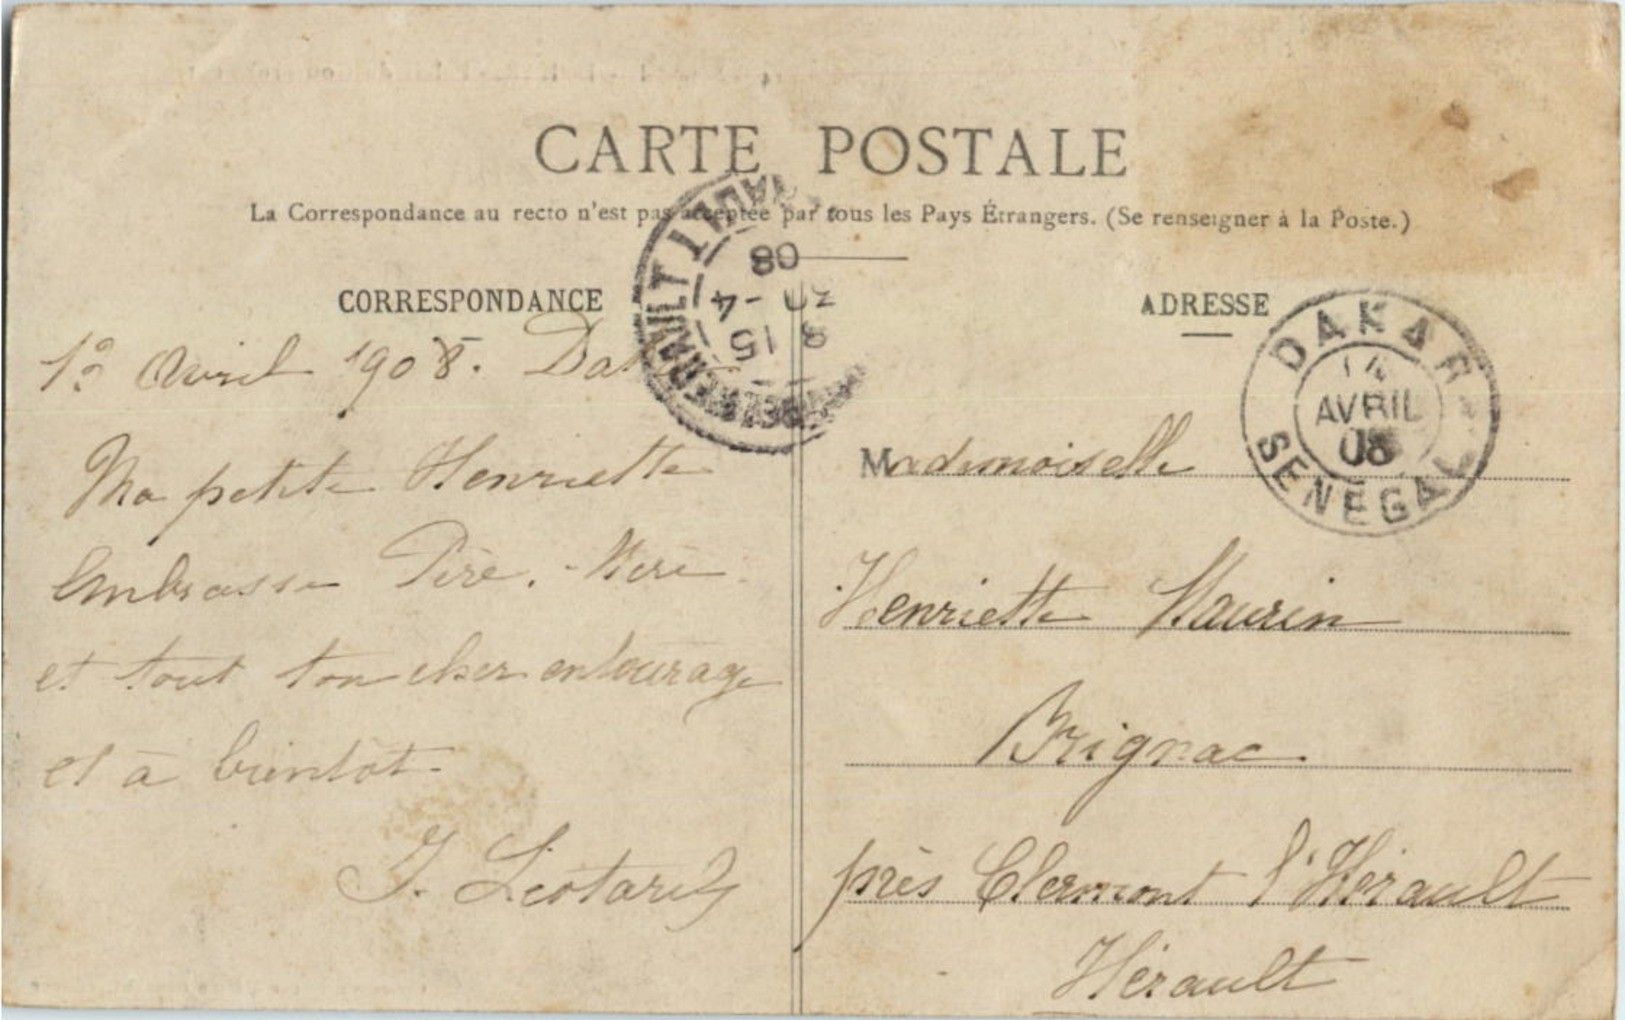 CARTE POSTALE
La Correspondance au recto n'est pas acceptée par tous les Pays Étrangers. (Se renseigner à la Poste.)
CORRESPONDANCE
1º Avril 1908.
Ma petite Henriette
Embrasse Père, Mère
et tout ton cher entourage
et à bientôt
ADRESSE
Mademoiselle
Henriette Maurin
Brignac
près Clermont l'Hérault
Hérault
DAKAR
14
AVRIL
08
SENEGAL
15
-4
08